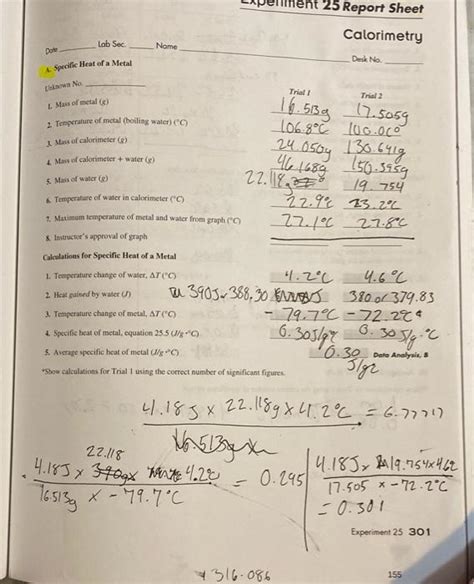 Experiment 25 Report Sheet
Calorimetry
Date Lab Sec. Name
Desk No.
A. Specific Heat of a Metal
Unknown No. Trial 1 Trial 2
1. Mass of metal (g) 16.513g 17.505g
2. Temperature of metal (boiling water) (°C) 106.8°C 100.0C°
3. Mass of calorimeter (g) 24.050g 130.641g
4. Mass of calorimeter + water (g) 46.168g 150.395g
5. Mass of water (g) 22.118g 19.754
6. Temperature of water in calorimeter (°C) 22.9°C 23.2°C
7. Maximum temperature of metal and water from graph (°C) 27.1°C 27.8°C
8. Instructor's approval of graph
Calculations for Specific Heat of a Metal
1. Temperature change of water, ΔT (°C) 4.2°C 4.6°C
2. Heat gained by water (J) 390J or 388.30 J 380 or 379.83
3. Temperature change of metal, ΔT (°C) - 79.7°C -72.2°C
4. Specific heat of metal, equation 25.5 (J/g·°C) 0.30J/g°C 0.30 J/g·°C
5. Average specific heat of metal (J/g·°C) 0.30 Data Analysis, B
*Show calculations for Trial 1 using the correct number of significant figures.
4.18J x 22.118g x 4.2°C =
16.513g x
22.118
4.18J x 4.2°C = 0.295
16.513g x -79.7°C
4.18J x 19.754x4.6
17.505 x -72.2°C
= 0.301
Experiment 25 301
316.086
155